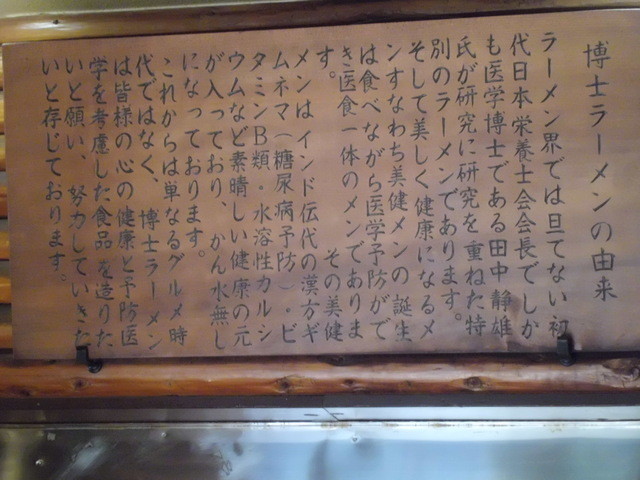 博士ラーメンの由来
ラーメン界では旦てない初
代日本栄養士会会長でしか
も医学博士である田中静雄
氏が研究に研究を重ねた特
別のラーメンであります。
そして美しく健康になるメ
ンすなわち美健メンの誕生
は食べながら医学予防がで
き医食一体のメンでありま
す。 その美健
メンはインド伝代の漢方ギ
ムネマ(糖尿病予防)・ビ
タミンB類・水溶性カルシ
ウムなど素晴しい健康の元
が入っており、かん水無し
になっております。
これからは単なるグルメ時
代ではなく、博士ラーメン
は皆様の心の健康と予防医
学を考慮した食品を造りた
いと願い、努力していきた
いと存じております。